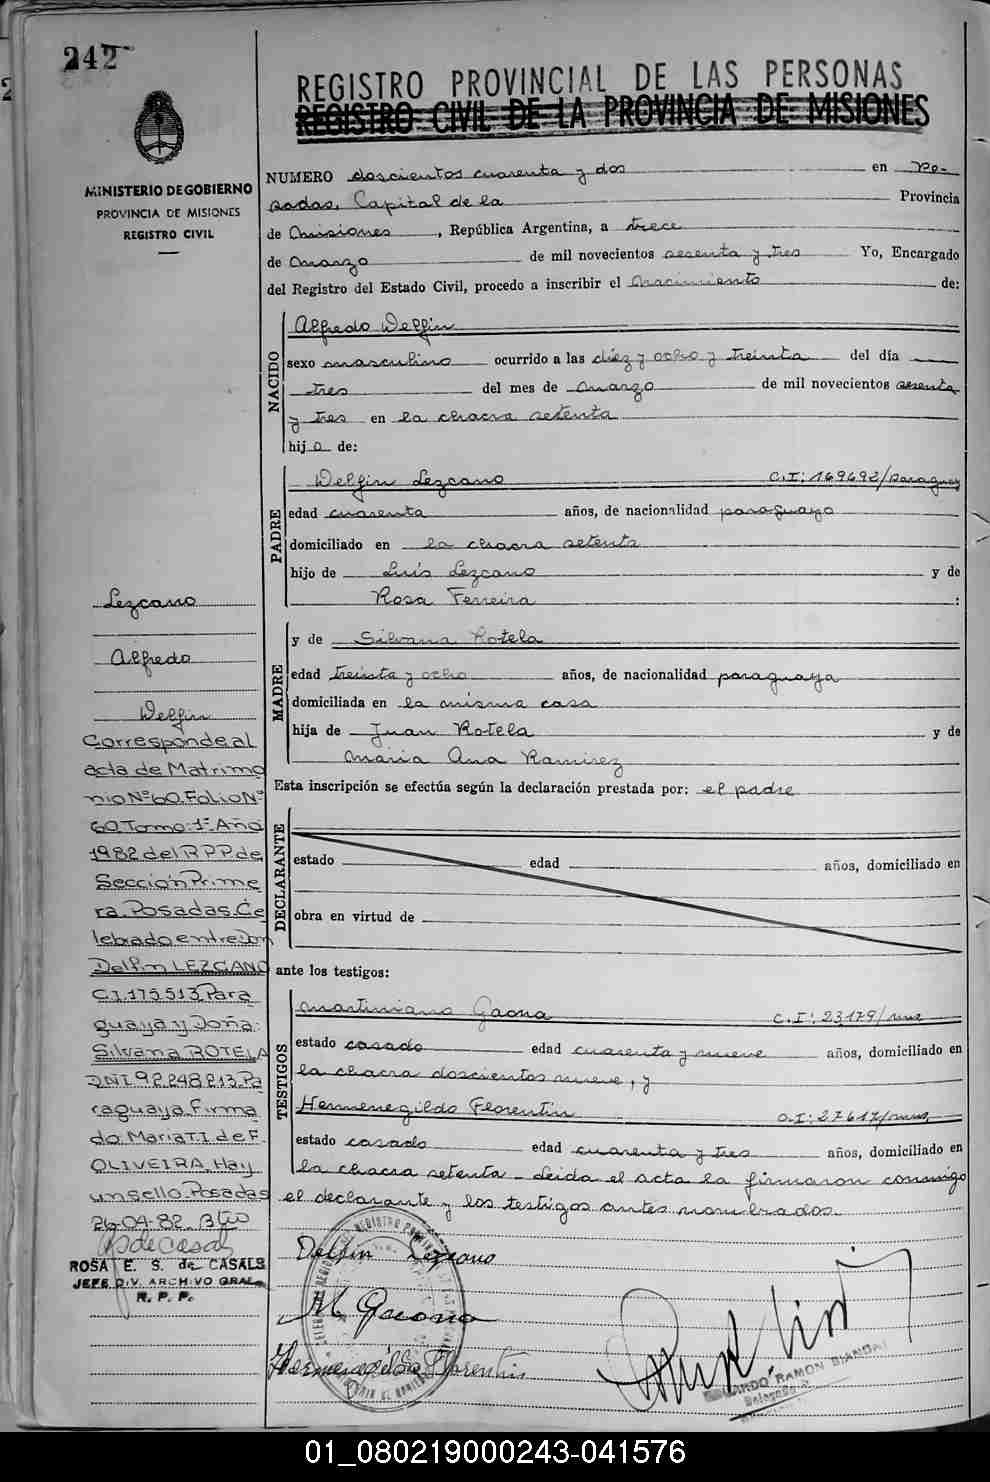 242
REGISTRO PROVINCIAL DE LAS PERSONAS
REGISTRO CIVIL DE LA PROVINCIA DE MISIONES
MINISTERIO DE GOBIERNO
PROVINCIA DE MISIONES
REGISTRO CIVIL
NUMERO doscientos cuarenta y dos en Po-
sadas, Capital de la Provincia
de Misiones, República Argentina, a trece
de Marzo de mil novecientos sesenta y tres Yo, Encargado
del Registro del Estado Civil, procedo a inscribir el Nacimiento de:
NACIDO
Alfredo Delfin
sexo masculino ocurrido a las diez y ocho y treinta del día
tres del mes de Marzo de mil novecientos sesenta
y tres en la chacra setenta
hijo de:
PADRE
Delfin Lezcano C.I: 169692/paraguay
edad cuarenta años, de nacionalidad paraguayo
domiciliado en la chacra setenta
hijo de Luis Lezcano y de
Rosa Ferreira :
MADRE
y de Silvana Rotela
edad treinta y ocho años, de nacionalidad paraguaya
domiciliada en la misma casa
hija de Juan Rotela y de
Maria Ana Ramirez
Esta inscripción se efectúa según la declaración prestada por: el padre
DECLARANTE
estado edad años, domiciliado en
obra en virtud de
ante los testigos:
TESTIGOS
Martiniano Gaona C.I: 23179/mnes
estado casado edad cuarenta y nueve años, domiciliado en
la chacra doscientos nueve, y
Hermenegildo Florentin C.I: 27617/mnes
estado casado edad cuarenta y tres años, domiciliado en
la chacra setenta. Leida el acta la firmaron conmigo
el declarante y los testigos antes nombrados.
Delfin Lezcano
M Gaona
Hermenegildo Florentin
EDUARDO RAMON BIANCHI
Delegado
Lezcano
Alfredo
Delfin
Corresponde al
acta de Matrimo
nio Nº 60 Folio Nº
60 Tomo: 1º Año
1982 del RPP de
Sección Prime
ra Posadas. Ce
lebrado entre Don
Delfin LEZCANO
C.I. 175.513 Para
guaya y Doña:
Silvana ROTELA
DNI. 92.248.213. Pa
raguaya. Firma
do Maria T.I. de F.
OLIVEIRA. Hay
un sello. Posadas
26-04-82. Btio
ROSA E. S. de CASALS
JEFE DIV. ARCHIVO GRAL.
R. P. P.
01_080219000243-041576